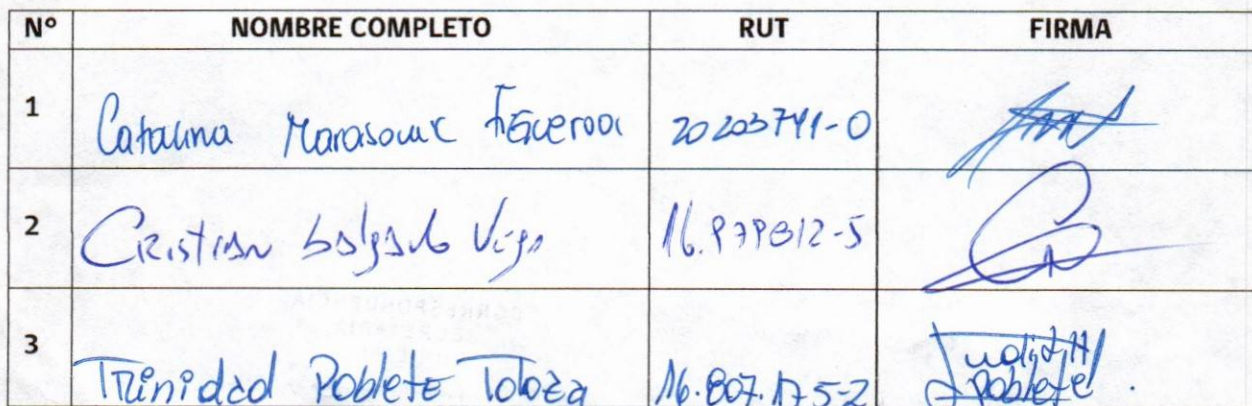 N° NOMBRE COMPLETO RUT FIRMA
1 Catalina Marasovic Figueroa 20203741-0
2 Cristian Salgado Vega
3 Trinidad Poblete Toloza 16.807.175-2 Poblete